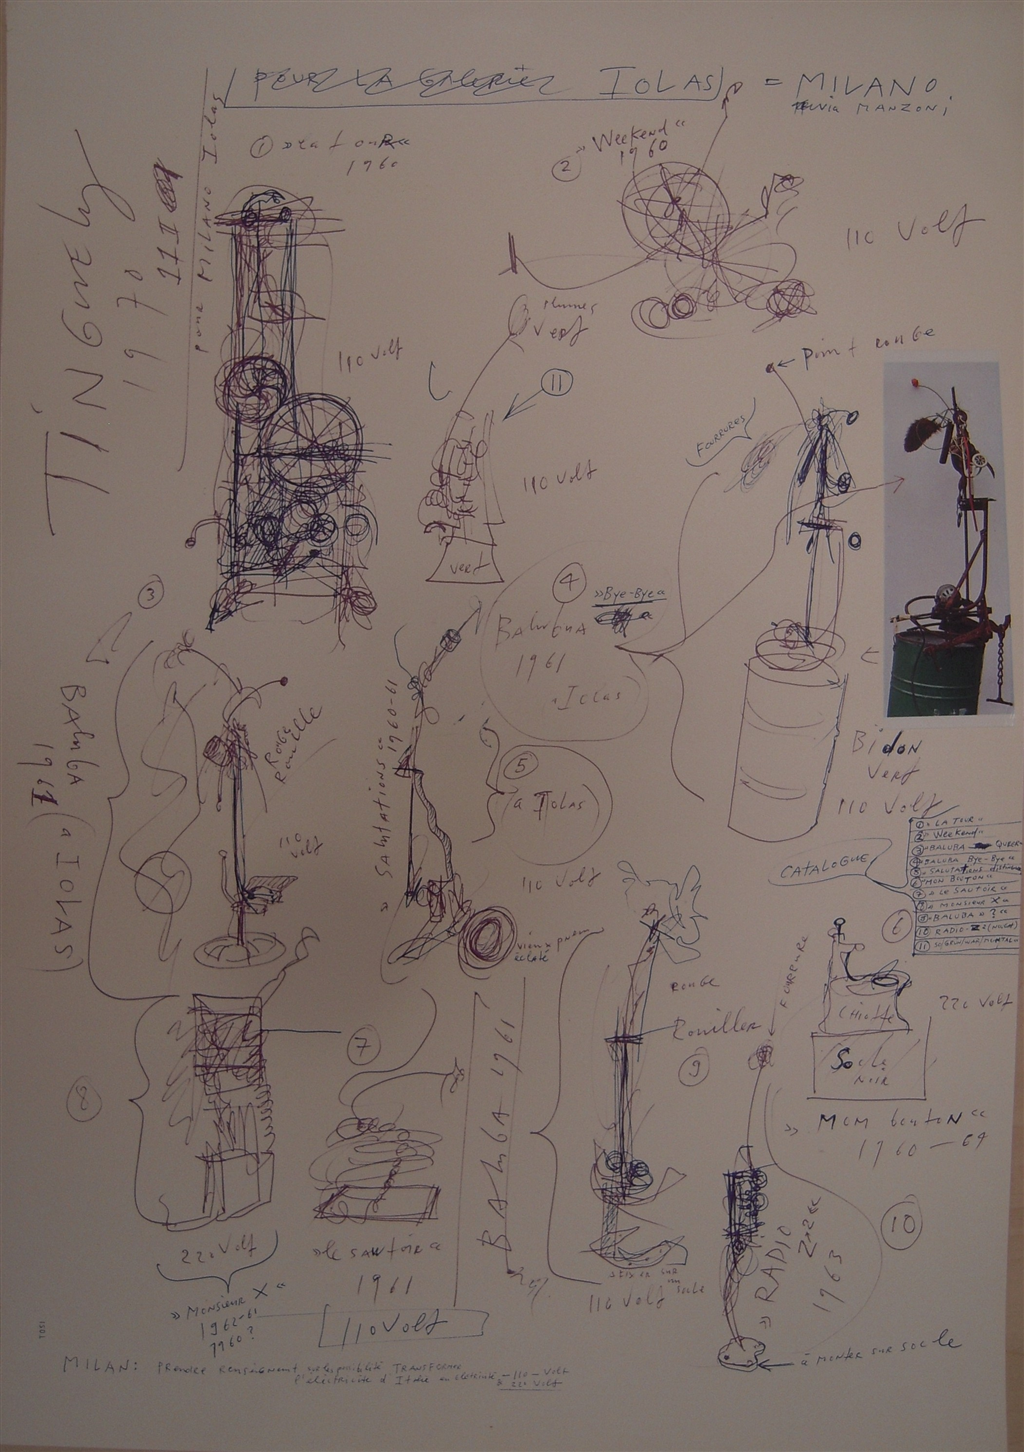 IOLAS) = MILANO
via MANZONI
TiNGuely
1970
pour MILANO Iolas
① »La tour«
1960
110 Volt
② »Weekend«
1960
110 Volt
Plumes
Vert
⑪
110 Volt
Vert
← Point rouge
FOURRURES
③
BALuBA
1961
(a IOLAS)
Rouge
Rouille
110
Volt
④
»Bye-Bye«
BALuBA
1961
Iolas
Bidon
Vert
110 Volt
»Salutations« 1960-61
⑤
(a Iolas)
110 Volt
vieux pneu
éclaté
CATALOGUE
① »LA TOUR«
② »Weekend«
③ »BALUBA
④ »BALUBA Bye-Bye«
⑤ »SALUTATIONS
⑥ »MON BOUTON«
⑦ »LE SAUTOIR«
⑧ »MONSIEUR X«
⑨ »BALUBA »?«
⑩ RADIO
⑪
⑥
220 Volt
Socle
NOIR
»Mom bouton«
1960—64
⑦
»le sautoir«
1961
110 Volt
⑧
220 Volt
»MONSIEUR X«
1960?
BALuBA 1961
rouge
Rouiller
⑨
110 Volt
FOURRURE
⑩
»RADIO
1963
à monter sur socle
MILAN: PRENDRE
TRANSFORMER
l'électricité d'Italie
110 - Volt
220 Volt